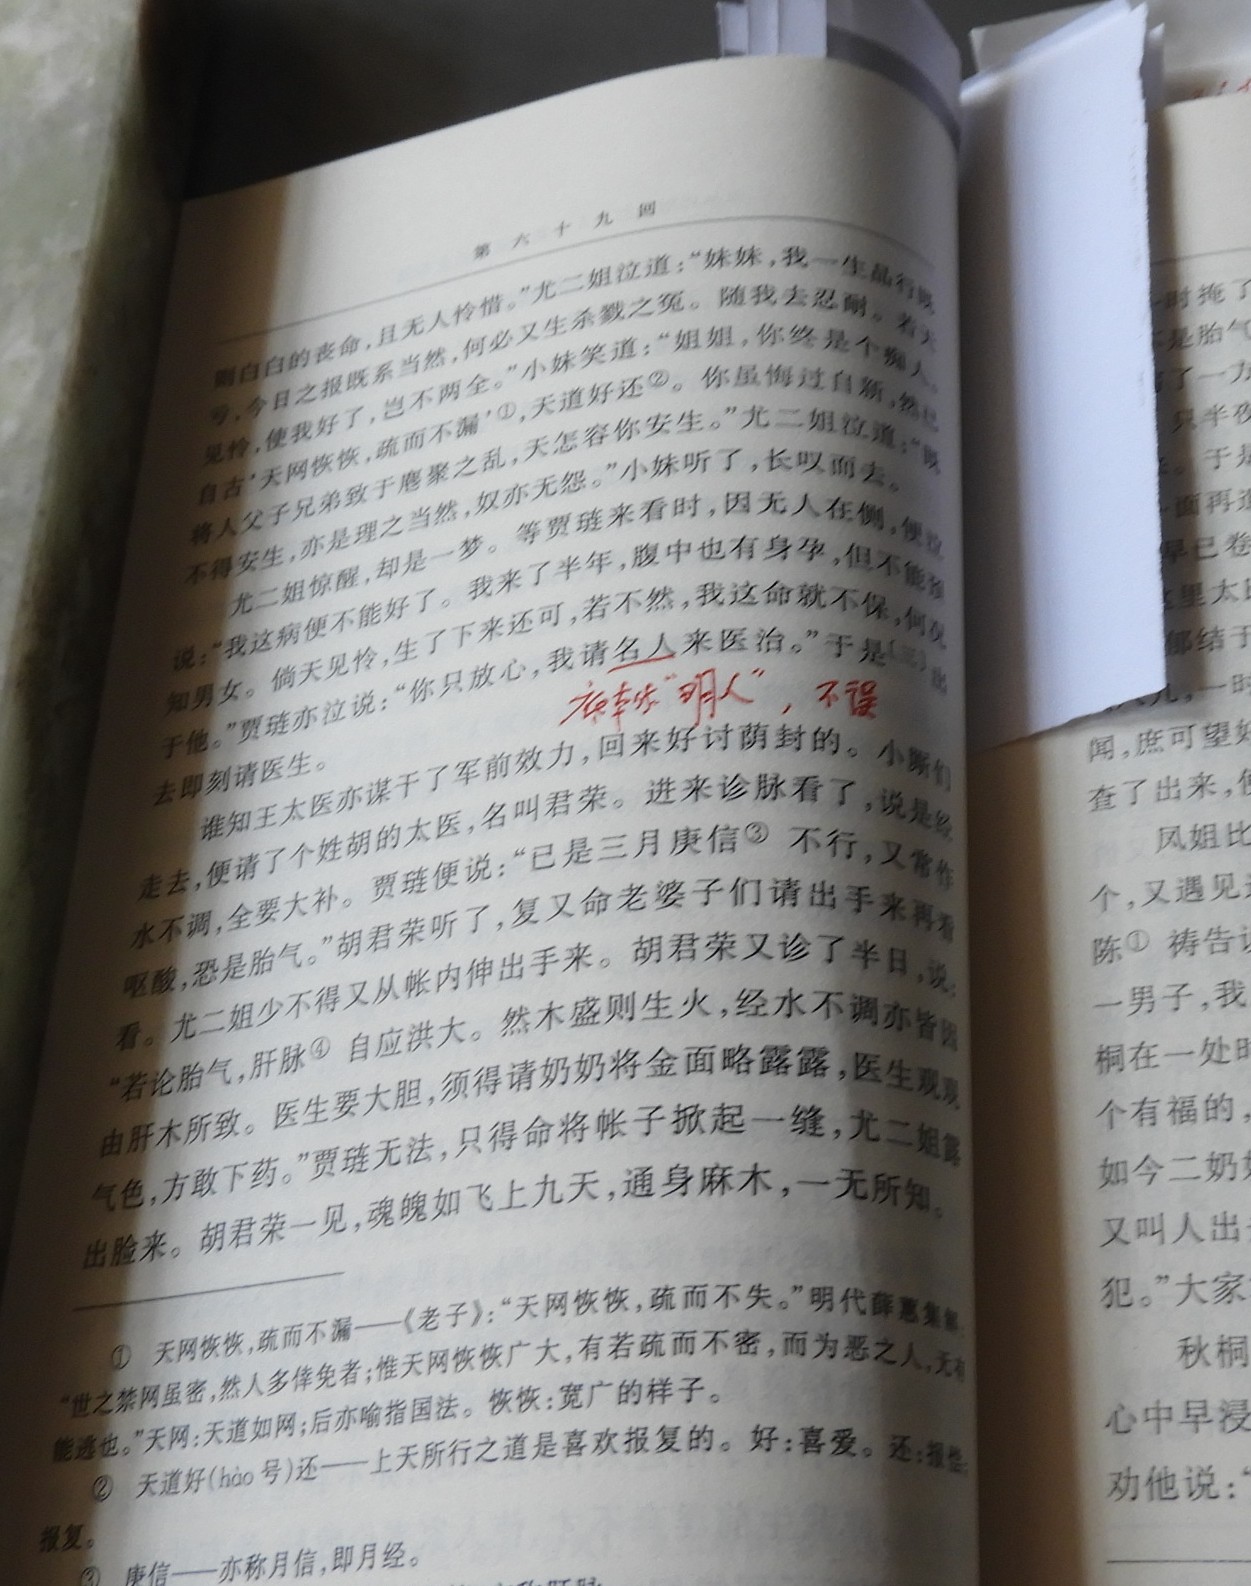 第六十九回
则白白的丧命,且无人怜惜。”尤二姐泣道:“妹妹,我一生品行既
亏,今日之报既系当然,何必又生杀戮之冤。随我去忍耐。若天
见怜,使我好了,岂不两全。”小妹笑道:“姐姐,你终是个痴人。
自古‘天网恢恢,疏而不漏’①,天道好还②。你虽悔过自新,然已
将人父子兄弟致于麀聚之乱,天怎容你安生。”尤二姐泣道:“既
不得安生,亦是理之当然,奴亦无怨。”小妹听了,长叹而去。
尤二姐惊醒,却是一梦。等贾琏来看时,因无人在侧,便泣
说:“我这病便不能好了。我来了半年,腹中也有身孕,但不能预
知男女。倘天见怜,生了下来还可,若不然,我这命就不保,何况
于他。”贾琏亦泣说:“你只放心,我请名人来医治。”于是(三)出
庚本作“明人”,不误
去即刻请医生。
谁知王太医亦谋干了军前效力,回来好讨荫封的。小厮们
走去,便请了个姓胡的太医,名叫君荣。进来诊脉看了,说是经
水不调,全要大补。贾琏便说:“已是三月庚信③不行,又常作
呕酸,恐是胎气。”胡君荣听了,复又命老婆子们请出手来再看
看。尤二姐少不得又从帐内伸出手来。胡君荣又诊了半日,说:
“若论胎气,肝脉④自应洪大。然木盛则生火,经水不调亦皆因
由肝木所致。医生要大胆,须得请奶奶将金面略露露,医生观观
气色,方敢下药。”贾琏无法,只得命将帐子掀起一缝,尤二姐露
出脸来。胡君荣一见,魂魄如飞上九天,通身麻木,一无所知。
① 天网恢恢,疏而不漏——《老子》:“天网恢恢,疏而不失。”明代薛蕙集解:
“世之禁网虽密,然人多倖免者;惟天网恢恢广大,有若疏而不密,而为恶之人,无有
能逃也。”天网:天道如网;后亦喻指国法。恢恢:宽广的样子。
② 天道好(hào号)还——上天所行之道是喜欢报复的。好:喜爱。还:报偿,
报复。
③ 庚信——亦称月信,即月经。
一时掩了
是胎气
了一
只半夜
。于是
面再
早已卷
这里太
郁结于
一时
闻,庶可望好
查了出来,使
凤姐比
个,又遇见
陈①祷告
一男子,我
桐在一处时
个有福的,
如今二奶奶
又叫人出
犯。”大家
秋桐
心中早浸
劝他说:“